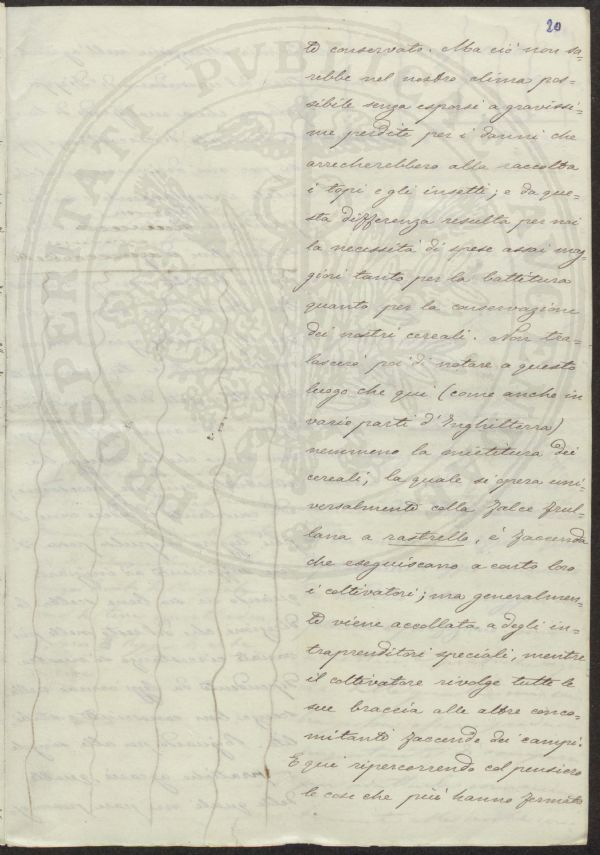 20
to conservato. Ma ciò non sa-
rebbe nel nostro clima pos-
sibile senza esporsi a gravissi-
me perdite per i danni che
arrecherebbero alla raccolta
i topi e gli insetti; e da que-
sta differenza resulta per noi
la necessità di spese assai mag-
giori tanto per la battitura
quanto per la conservazione
dei nostri cereali. Non tra-
lascerò poi di notare a questo
luogo che qui (come anche in
varie parti d'Inghilterra)
nemmeno la mietitura dei
cereali, la quale si opera uni-
versalmente colla falce frul-
lana a rastrello, è faccenda
che eseguiscano a conto loro
i coltivatori; ma generalmen-
te viene accollata a degli in-
traprenditori speciali, mentre
il coltivatore rivolge tutte le
sue braccia alle altre conco-
mitanti faccende dei campi.
E qui ripercorrendo col pensiero
le cose che più hanno fermato
PROSPERITATI PUBLICAE